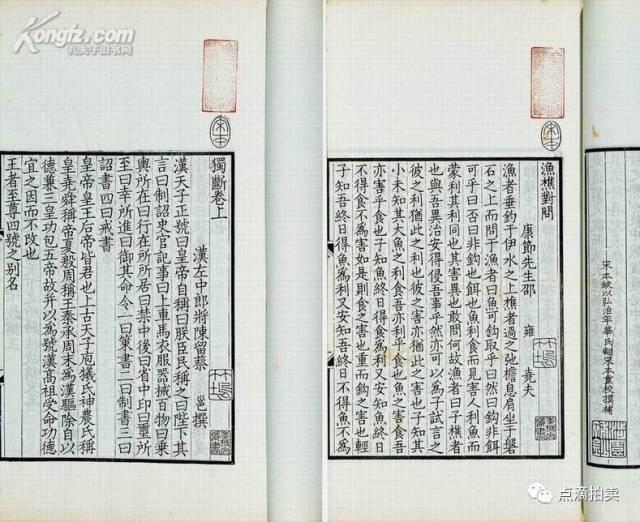 Kongfz.com
孔夫子旧书网
宋本缺以弘治年華氏翻宋本重校摸補
宋本
漁樵對問
康節先生邵 雍 堯夫
漁者垂鈎于伊水之上樵者過之弛檐息肩坐于磐
石之上而問于漁者曰魚可鈎取乎曰然曰鈎非餌
可乎曰否曰非鈎也餌也魚利食而見害人利魚而
蒙利其利同也其害異也敢問何故漁者曰子樵者
也與吾異治安得侵吾事乎然亦可以為子試言之
彼之利猶此之利也彼之害亦猶此之害也子知其
小未知其大魚之利食吾亦利乎食也魚之害食吾
亦害乎食也子知魚終日得食為利又安知魚終日
不得食不為害如是則食之害也重而鈎之害也輕
子知吾終日得魚為利又安知吾終日不得魚不為
宋本
獨斷卷上
漢左中郎將陳留蔡 邕撰
漢天子正號曰皇帝自稱曰朕臣民稱之曰陛下其
言曰制詔史官記事曰上車馬衣服器械百物曰乘
輿所在曰行在所所居曰禁中後曰省中印曰璽所
至曰幸所進曰御其命令一曰策書二曰制書三曰
詔書四曰戒書
皇帝皇王后帝皆君也上古天子庖犧氏神農氏稱
皇堯舜稱帝夏殷周稱王秦承周末為漢驅除自以
德兼三皇功包五帝故并以為號漢高祖受命功德
宜之因而不改也
王者至尊四號之別名
点滴拍卖